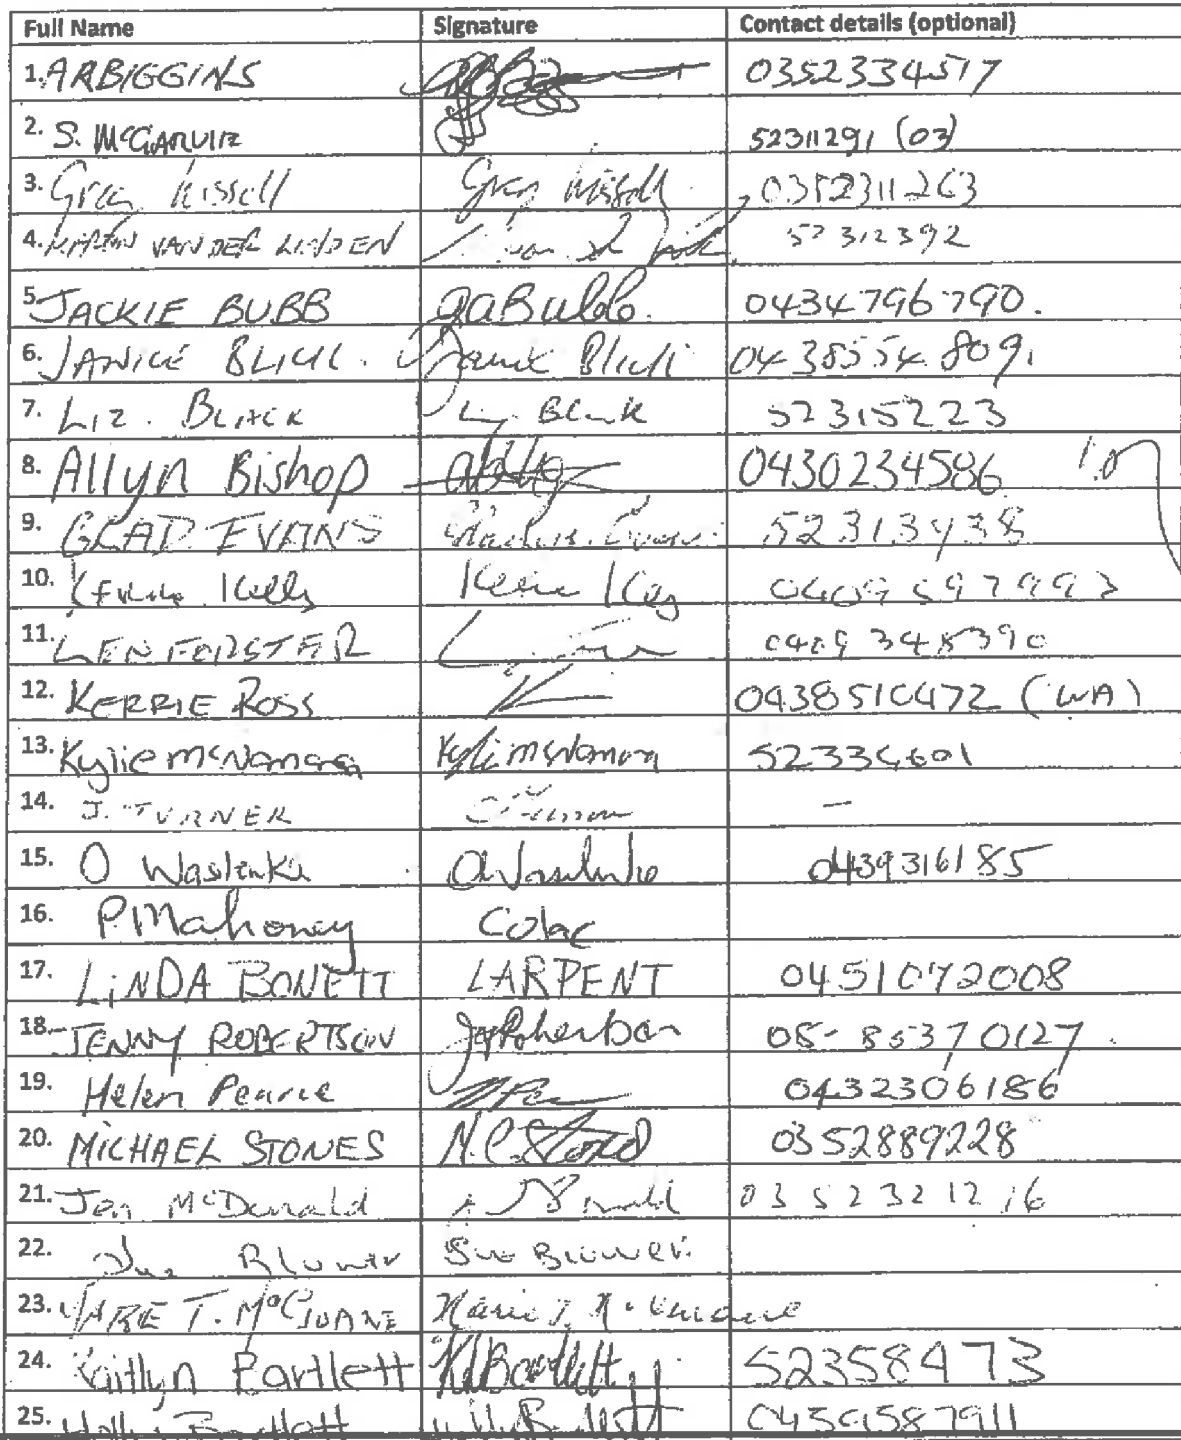 Full Name Signature Contact details (optional)
1. ARBIGGINS 0352334517
2. S. McGARVIE 52311291 (03)
3. Greg Kissell Greg Kissell 0352311263
4. VAN DER LINDEN van d 52312392
5. JACKIE BUBB JaBubb. 0434796790.
6. JANICE 0438554809,
7. LIZ. BLACK Black 52315223
8. Allyn Bishop 0430234586
9. GLAD EVANS Gladys Evans 52313438
10. Kelly
11. LEN FORSTER 0409348390
12. KERRIE ROSS 0438510472 (WA)
13. Kylie McNamara Kylie McNamara
14. J. TURNER –
15. O Waslenki 0439316185
16. P. Mahoney Colac
17. LINDA BONETT LARPENT 0451072008
18. JENNY ROBERTSON 08-85370127
19. Helen Pearce 0432306186
20. MICHAEL STONES 0352889228
21. McDonald 0352321216
22. Sue Blower Sue Blower.
23. T. Marie T.
24. Kaitlyn Bartlett KBartlett 52358473
25. Holly Bartlett